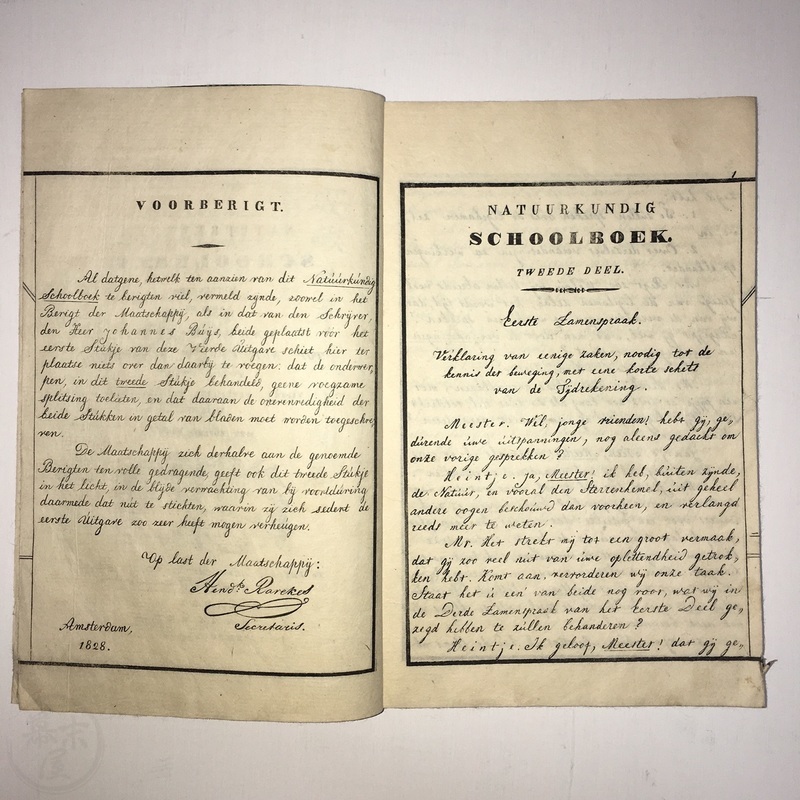 VOORBERIGT.
Al datgene, hetwelk ten aanzien van dit Natúúrkúndig
Schoolboek te berigten viel, vermeld zynde, zoowel in het
Berigt der Maatschappij, als in dat van den Schrijver,
den Heer Johannes Búijs, beide geplaatst vóór het
eerste Stúkje van deze Vierde Úitgave schiet hier ter
plaatse niets over dan daarbij te voegen: dat de onderwer,,
pen, in dit tweede Stúkje behandeld, geene voegzame
splitsing toelieten, en dat daaraan de onevenredigheid der
beide Stúkken in getal van bladen moet worden toegeschre,,
ven.
De Maatschappij zich derhalve aan de genoemde
Berigten ten volle gedragende, geeft ook dit tweede Stúkje
in het licht, in de blijde verwachting van bij voortdúring
daarmede dat nút te stichten, waarin zij zich sedert de
eerste Uitgave zoo zeer heeft mogen verheugen.
Op last der Maatschappij:
Hendk.
Secretaris.
Amsterdam,
1828.
1
NATUURKUNDIG
SCHOOLBOEK.
TWEEDE DEEL.
Eerste Zamenspraak.
Verklaring van eenige zaken, noodig tot de
kennis der beweging, met eene korte schets
van de Tijdrekening.
Meester. Wel, jonge vrienden! hebt gij, ge,,
dúrende úwe úitspanningen, nog aleens gedacht om
onze vorige gesprekken?
Heintje. Ja, Meester! ik heb, búiten zijnde,
de Natúúr, en vooral den Sterrenhemel, úit geheel
andere oogen beschoúwd dan voorheen, en verlangd
reeds meer te weten.
Mr. Het strekt mij tot een groot vermaak,
dat gij zoo veel nút van úwe oplettendheid getrok,,
ken hebt. Komt aan, vervorderen wij onze taak.
Staat het ú een' van beide nog voor, wat wij in
de Derde Zamenspraak van het Eerste Deel ge,,
zegd hebben te zúllen behandelen?
Heintje. Ik geloof, Meester! dat gij ge,,